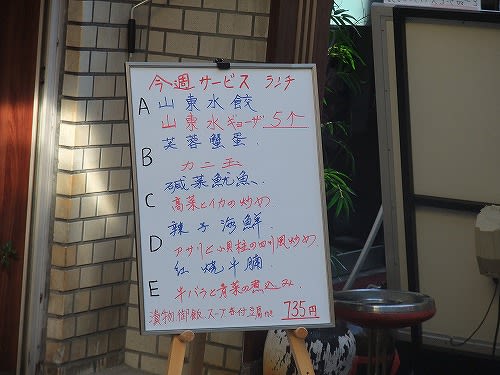 今週サービス ランチ
A 山東水餃
山東水ギョーザ 5个
B 芙蓉蟹蛋
カニ玉
C 碱菜魷魚
高菜とイカの炒め
D 辣子海鮮
アサリと小貝柱の四川風炒め
E 紅焼牛腩
牛バラと青菜の煮込み
漬物 御飯 スープ 杏仁豆腐付 735円